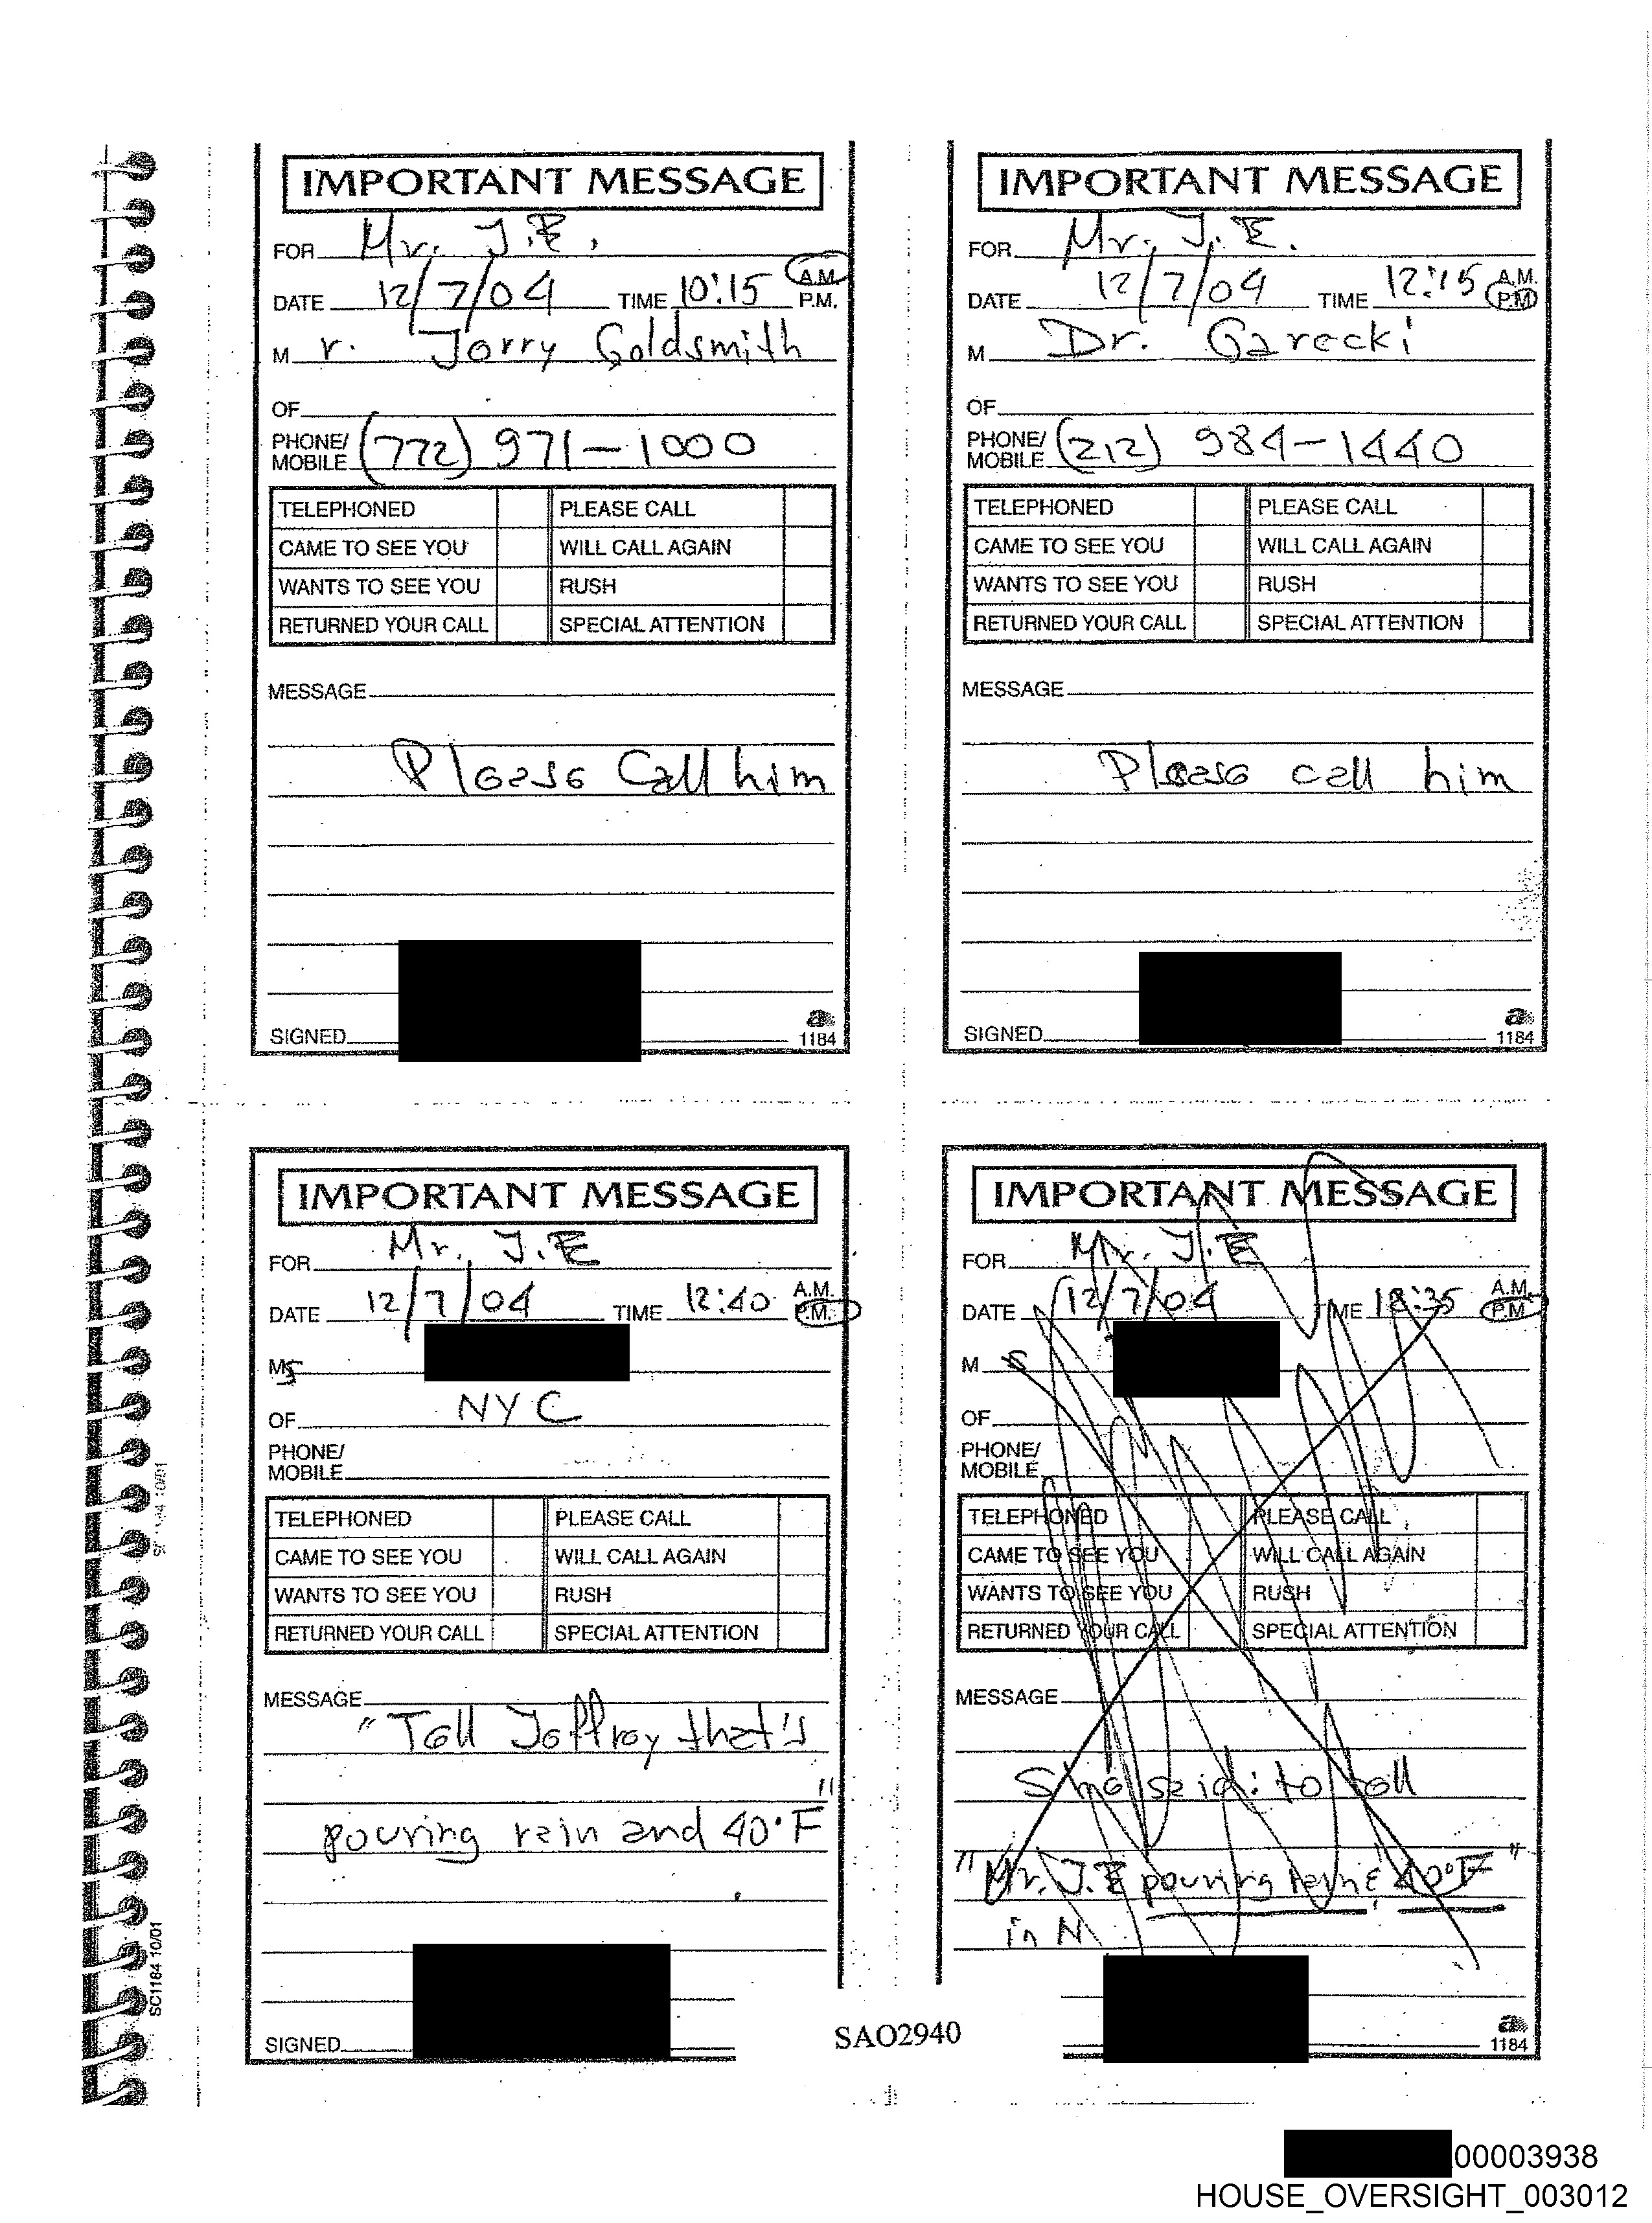 IMPORTANT MESSAGE
FOR Mr. J.E.
DATE 12/7/04 TIME 10:15 A.M. P.M.
M r. Jerry Goldsmith
OF
PHONE/ MOBILE (772) 971-1000
TELEPHONED PLEASE CALL
CAME TO SEE YOU WILL CALL AGAIN
WANTS TO SEE YOU RUSH
RETURNED YOUR CALL SPECIAL ATTENTION
MESSAGE
Please Call him
SIGNED
1184
IMPORTANT MESSAGE
FOR Mr. J. E.
DATE 12/7/04 TIME 12:15 A.M. P.M.
M Dr. Garecki
OF
PHONE/ MOBILE (212) 984-1440
TELEPHONED PLEASE CALL
CAME TO SEE YOU WILL CALL AGAIN
WANTS TO SEE YOU RUSH
RETURNED YOUR CALL SPECIAL ATTENTION
MESSAGE
Please call him
SIGNED
1184
IMPORTANT MESSAGE
FOR Mr. J.E
DATE 12/7/04 TIME 12:40 A.M. P.M.
Ms
OF NYC
PHONE/ MOBILE
TELEPHONED PLEASE CALL
CAME TO SEE YOU WILL CALL AGAIN
WANTS TO SEE YOU RUSH
RETURNED YOUR CALL SPECIAL ATTENTION
MESSAGE
"Tell Jeffrey that's
pouring rain and 40°F"
SIGNED
SC1184 10/01
IMPORTANT MESSAGE
FOR Mr. J.E
DATE 12/7/04 TIME 12:35 A.M. P.M.
M s
OF
PHONE/ MOBILE
TELEPHONED PLEASE CALL
CAME TO SEE YOU WILL CALL AGAIN
WANTS TO SEE YOU RUSH
RETURNED YOUR CALL SPECIAL ATTENTION
MESSAGE
She said: to tell
"Mr. J.E pouring rain & 40°F"
in N
1184
SAO2940
00003938
HOUSE_OVERSIGHT_003012